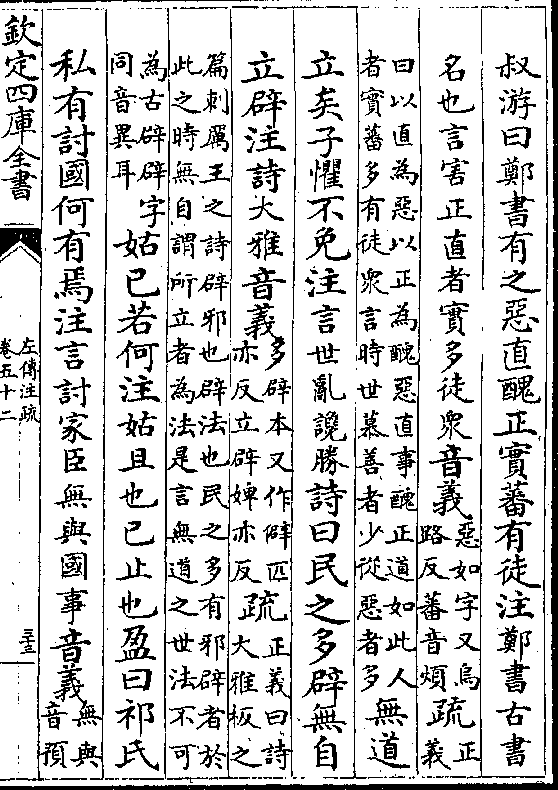 叔游曰鄭書有之惡直醜正實蕃有徒注鄭書古書
名也言害正直者實多徒衆音義惡如字又烏
路反蕃音煩疏正
義
曰以直為惡以正為醜惡直事醜正道如此人
者實蕃多有徒衆言時世慕善者少從惡者多無道
立矣子懼不免注言世亂讒勝詩曰民之多辟無自
立辟注詩大雅音義多辟本又作僻匹
亦反立辟婢亦反疏正義曰詩
大雅板之
篇刺厲王之詩辟邪也辟法也民之多有邪辟者於
此之時無自謂所立者為法是言無道之世法不可
為古辟辟字
同音異耳姑已若何注姑且也已止也盈曰祁氏
私有討國何有焉注言討家臣無與國事音義無與
音預
欽定四庫全書
左傳注疏
卷五十二
三十三